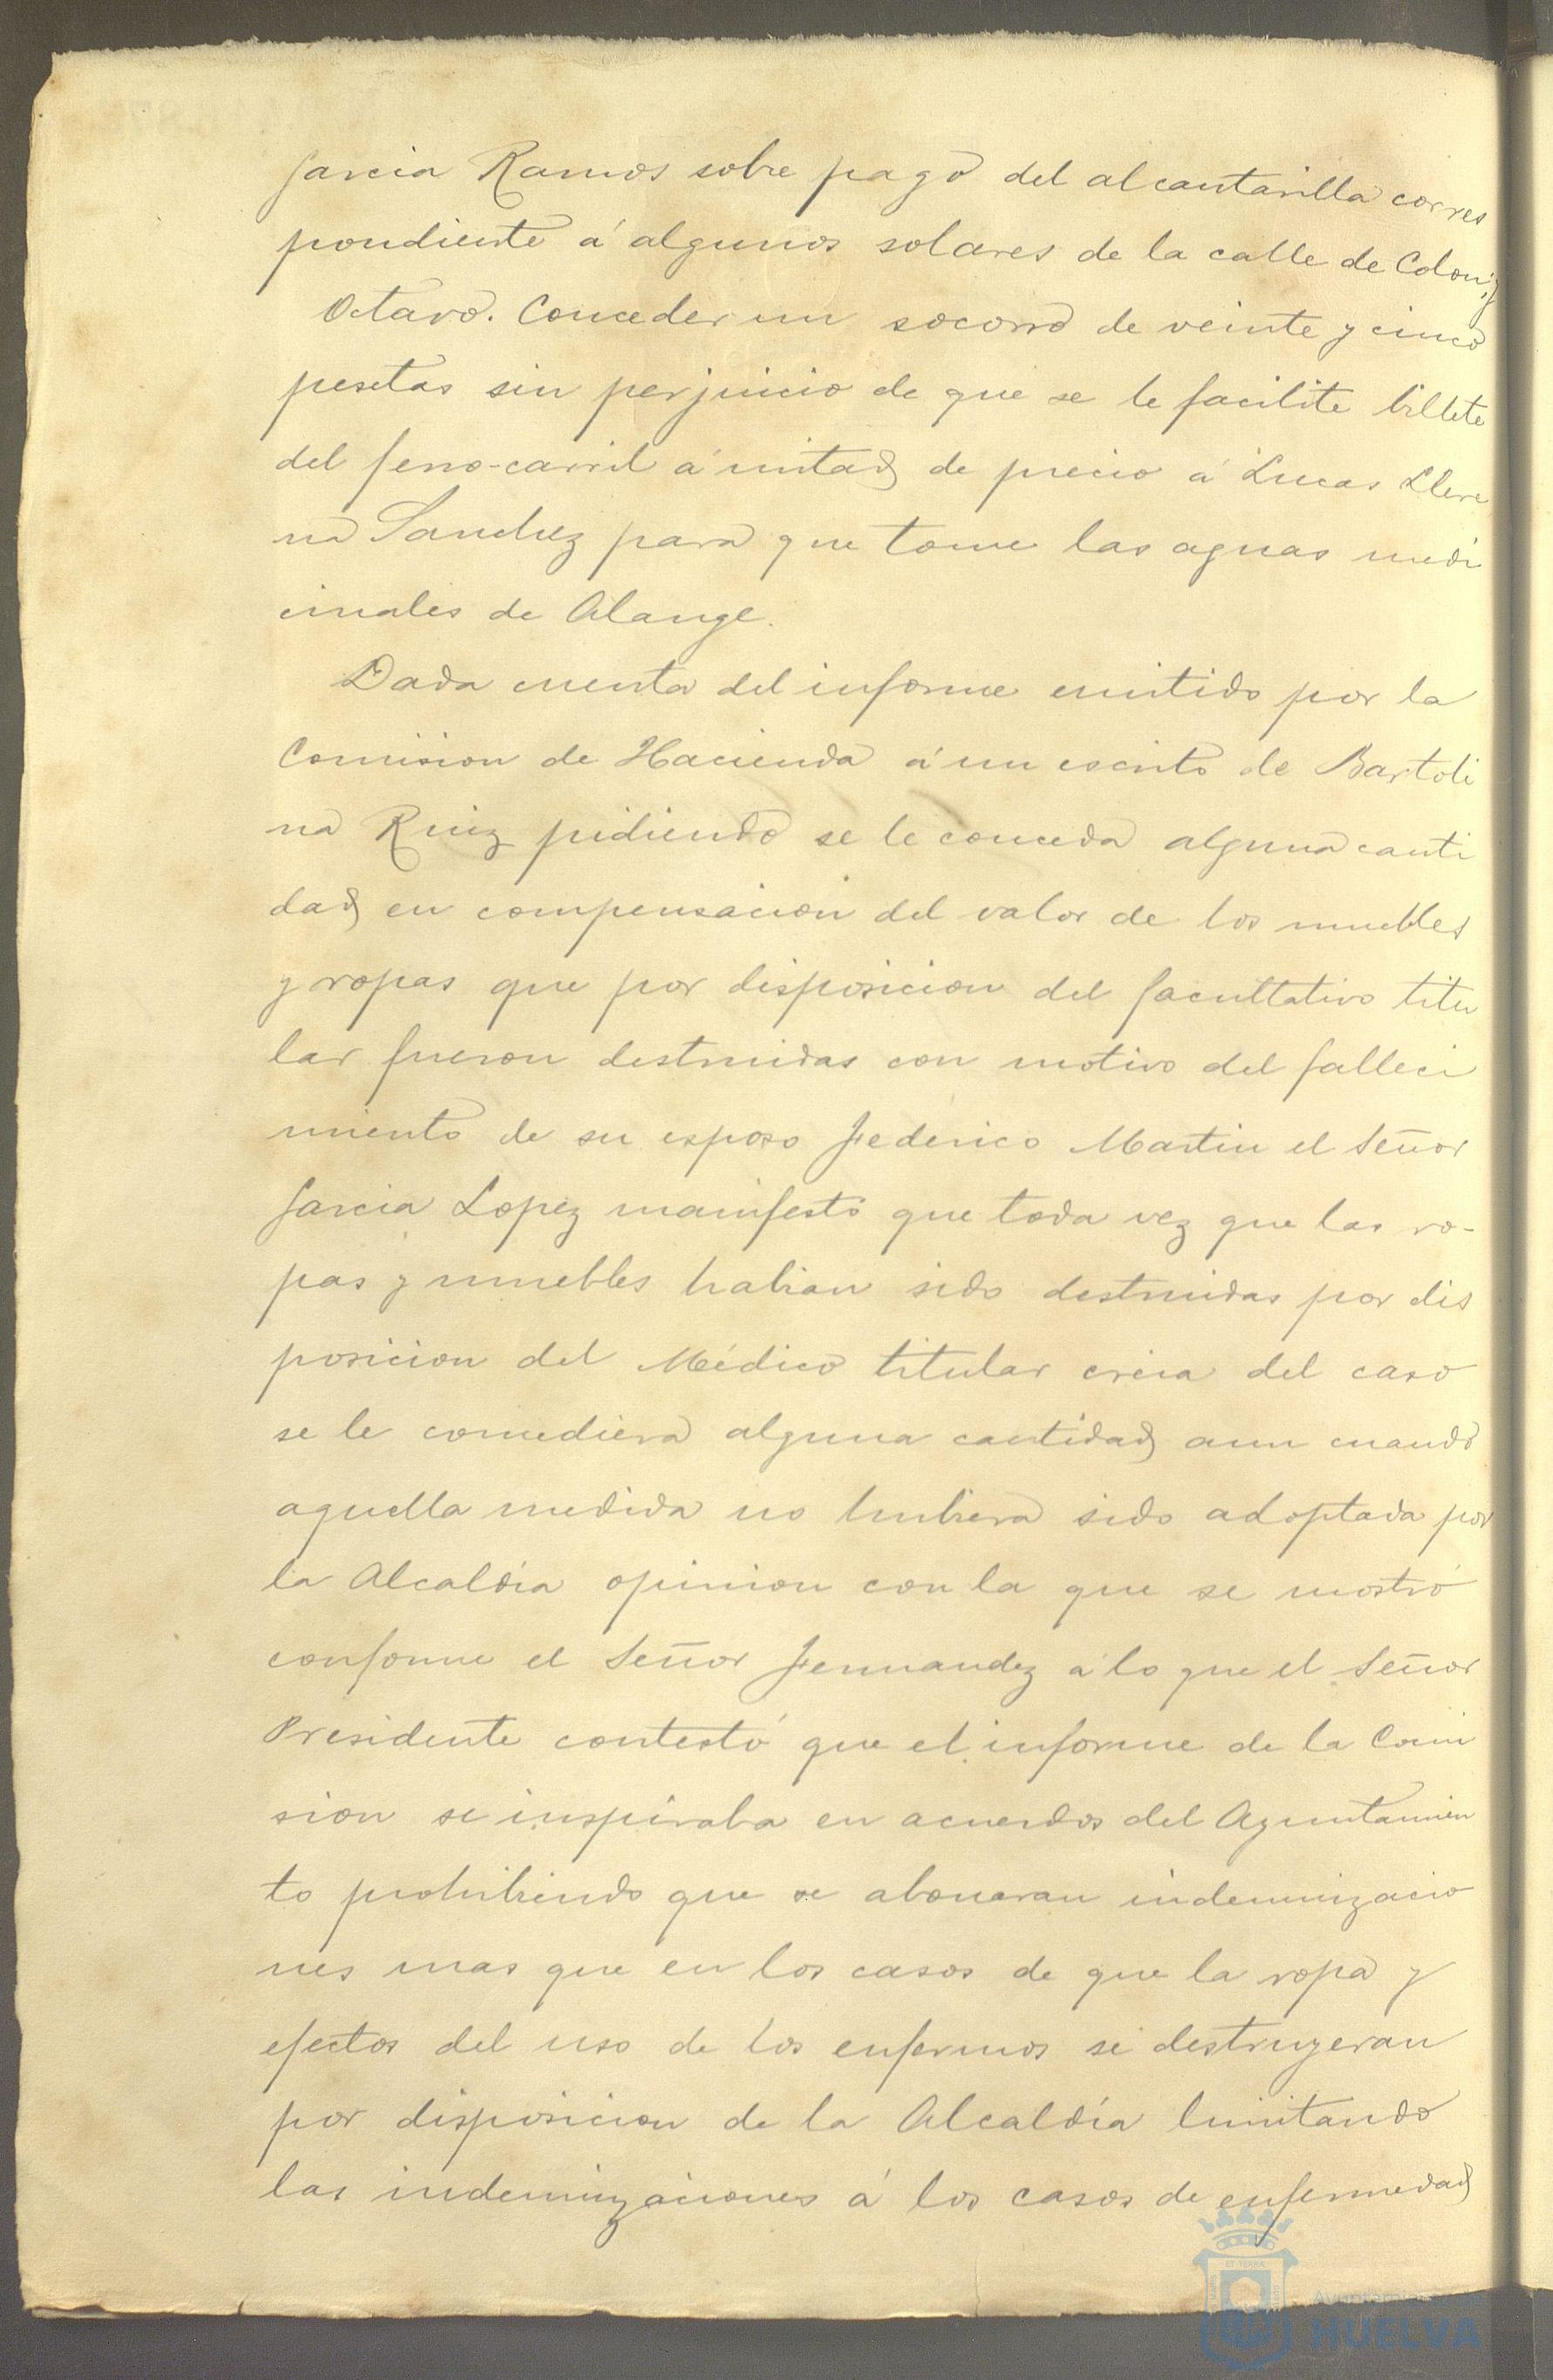 Garcia Ramos sobre pago del alcantarilla corres
pondiente á algunos solares de la calle de Colon; y
Octavo. Conceder un socorro de veinte y cinco
pesetas sin perjuicio de que se le facilite billete
del ferro-carril á mitad de precio á Lucas Llere
na Sanchez para que tome las aguas medi
cinales de Alange.
Dada cuenta del informe emitido por la
Comision de Hacienda á un escrito de Bartoli
na Ruiz pidiendo se le conceda alguna canti
dad en compensacion del valor de los muebles
y ropas que por disposicion del facultativo titu
lar fueron destruidas con motivo del falleci
miento de su esposo Federico Martin el Señor
Garcia Lopez manifestó que toda vez que las ro-
pas y muebles habian sido destruidas por dis
posicion del Médico titular creia del caso
se le concediera alguna cantidad aun cuando
aquella medida no hubiera sido adoptada por
la Alcaldía opinion con la que se mostró
conforme el Señor Fernandez á lo que el Señor
Presidente contestó que el informe de la Comi
sion se inspiraba en acuerdos del Ayuntamien
to prohibiendo que se abonaran indemnizacio
nes mas que en los casos de que la ropa y
efectos del uso de los enfermos se destruyeran
por disposicion de la Alcaldía limitando
las indemnizaciones á los casos de enfermedad
Ayuntamiento de
HUELVA